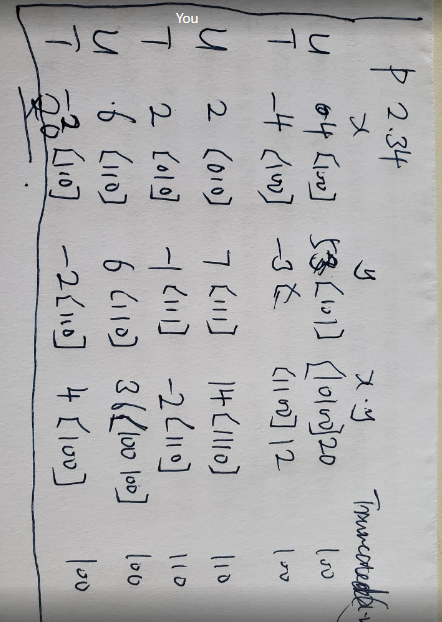 You
P 2.34
x y x·y Truncated
U 4 [100] [101] [10100] 20 100
T -4 [100] -3 [1100] 12 100
U 2 [010] 7 [111] 14 [1110] 110
T 2 [010] -1 [111] -2 [110] 110
U 6 [110] 6 [110] 36 [100100] 100
T -2 [110] -2 [110] 4 [100] 100